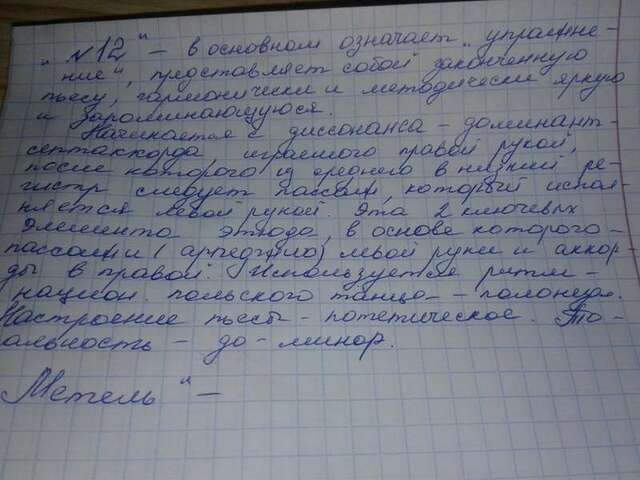 „N12" – в основном означает „упражне-
ние", представляет собой законченную
пьесу, гармонически и методически яркую
и запоминающуюся.
Начинается с диссонанса – доминант-
септаккорда играемого правой рукой,
после которого из среднего в низкий ре-
гистр следует пассаж, который испол-
няется левой рукой. Эта 2 ключевых
элемента этюда, в основе которого –
пассажи (арпеджио) левой руки и аккор-
ды в правой. Используется ритм –
национ. польского танца – полонеза.
Настроение пьесы – потетическое. То-
альность – до-минор.
Метель" –